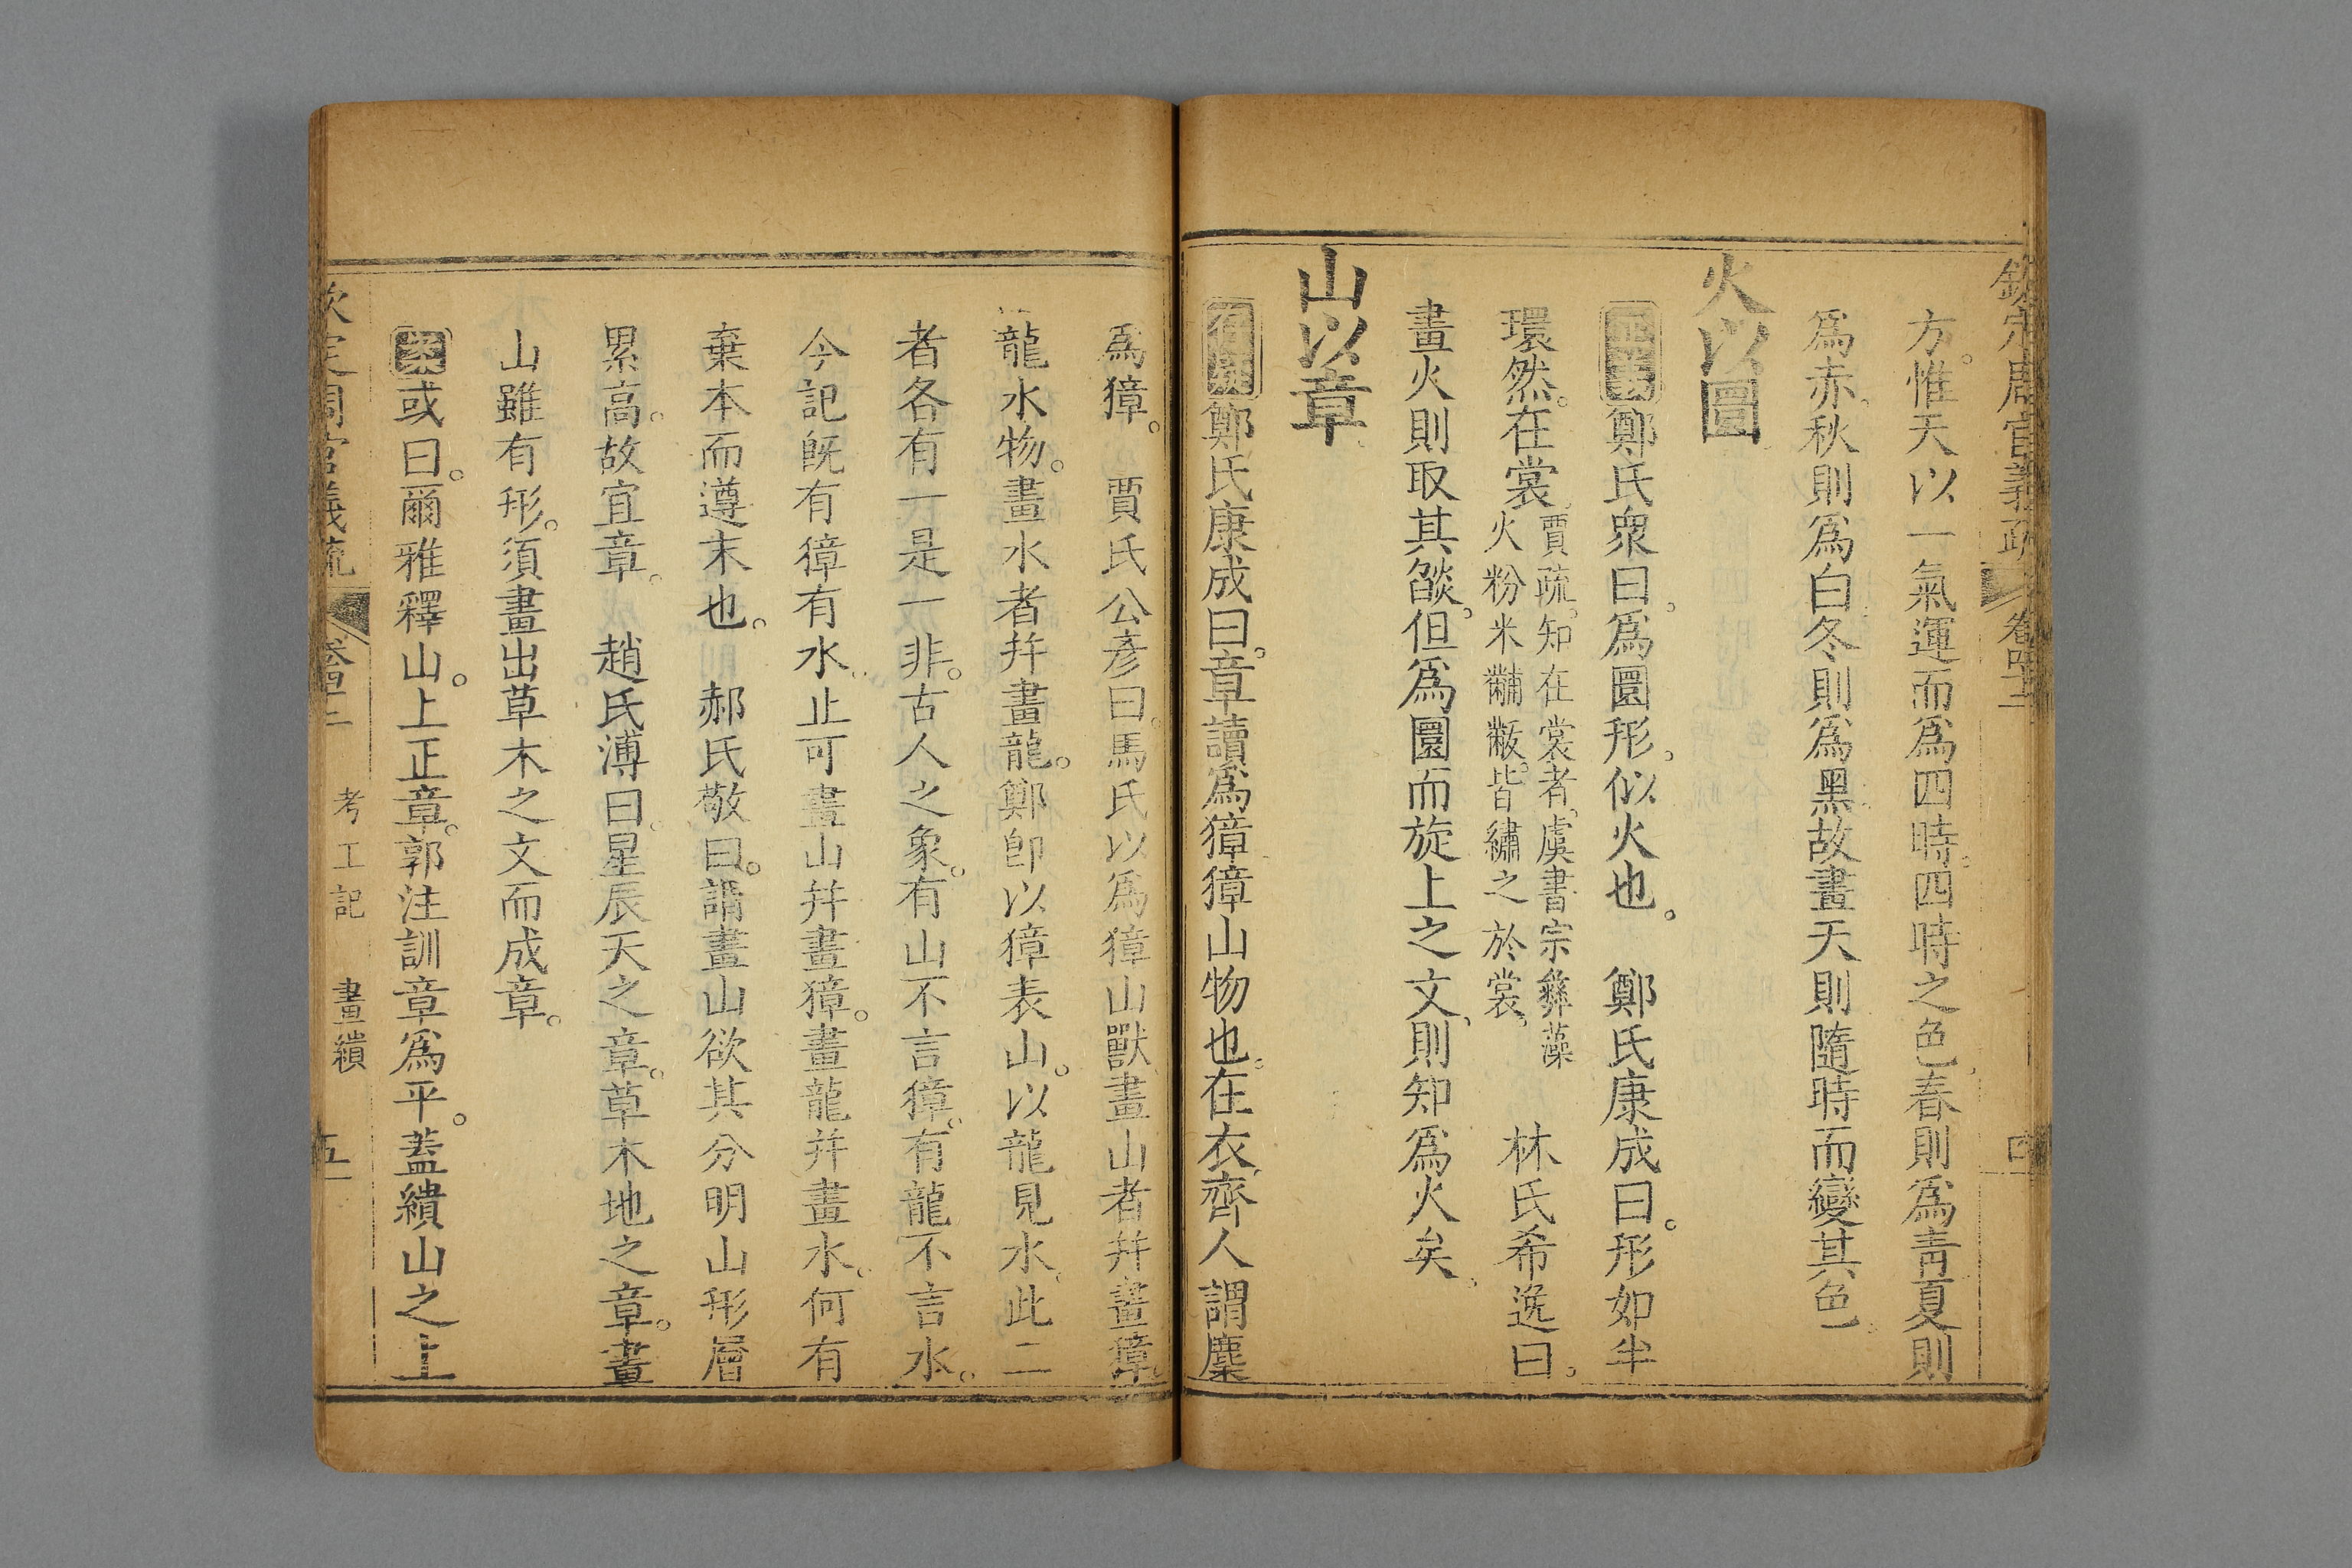 欽定周官義疏 卷四十二 四
方惟天以一氣運而爲四時四時之色春則爲靑夏則
爲赤秋則爲白冬則爲黑故畫天則隨時而變其色
火以圜
正義鄭氏衆曰爲圜形似火也 鄭氏康成曰形如半
環然在裳賈疏知在裳者虞書宗彝藻
火粉米黼黻皆繡之於裳 林氏希逸曰
畫火則取其燄但爲圜而旋上之文則知爲火矣
山以章
存疑鄭氏康成曰章讀爲獐獐山物也在衣齊人謂麇
爲獐 賈氏公彥曰馬氏以爲獐山獸畫山者幷畫獐
龍水物畫水者幷畫龍鄭卽以獐表山以龍見水此二
者各有一是一非古人之象有山不言獐有龍不言水
今記旣有獐有水止可畫山幷畫獐畫龍幷畫水何有
棄本而遵末也 郝氏敬曰謂畫山欲其分明山形層
累高故宜章 趙氏溥曰星辰天之章草木地之章畫
山雖有形須畫出草木之文而成章
案或曰爾雅釋山上正章郭注訓章爲平蓋繢山之上
欽定周官義疏 卷四十二 考工記 畫繢 五